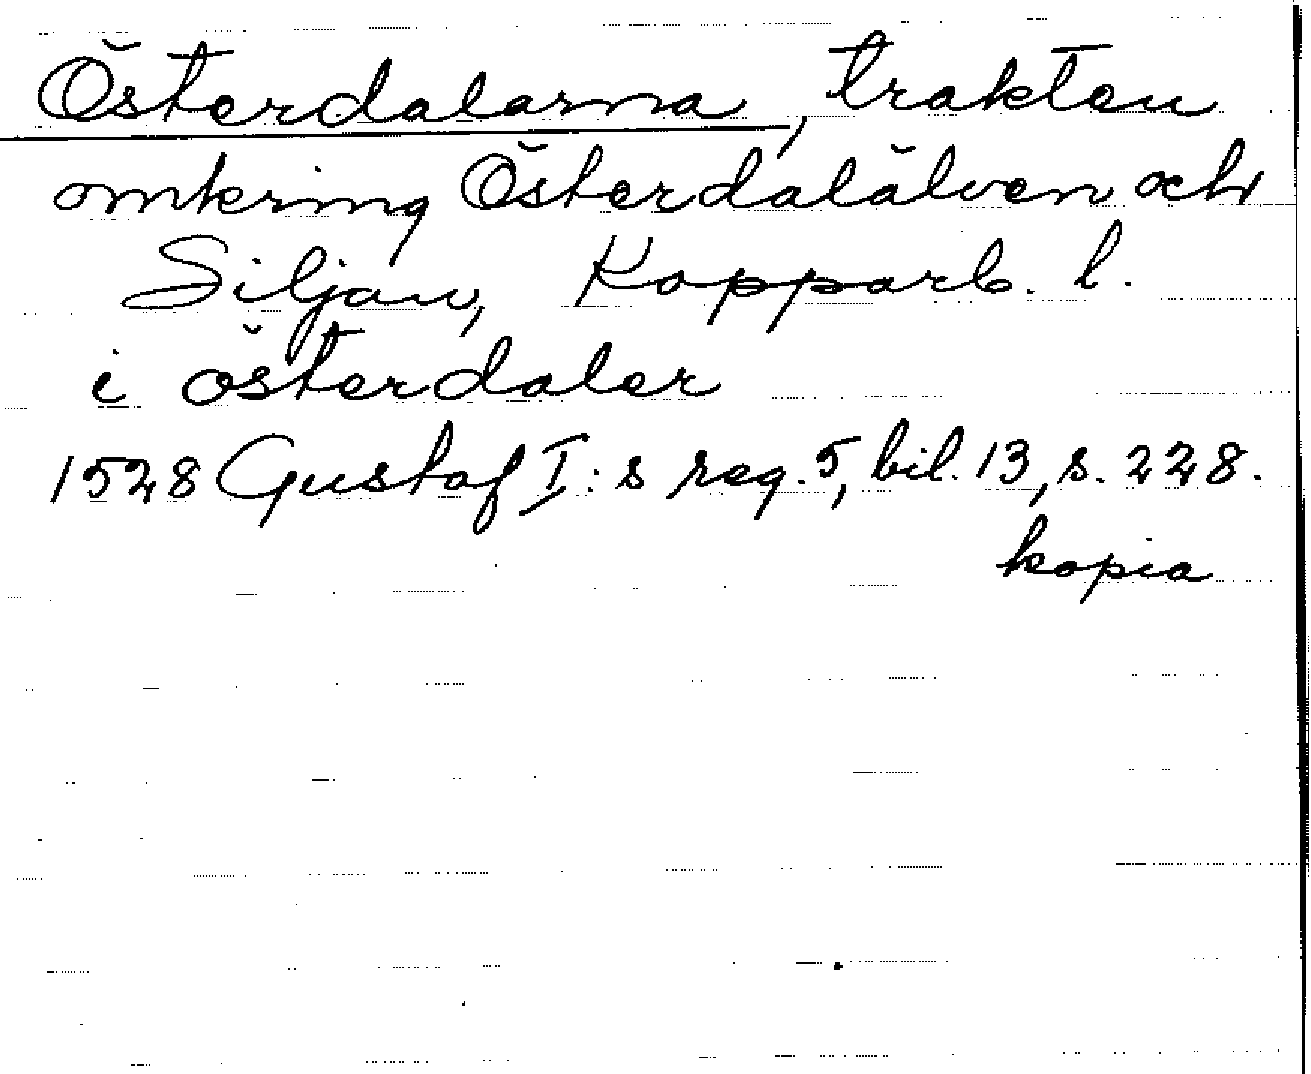 Österdalarna, trakten
omkring Österdalälven och
Siljan, Kopparb. l.
i österdaler
1528 Gustaf I:s reg. 5, bil. 13, s. 228.
kopia